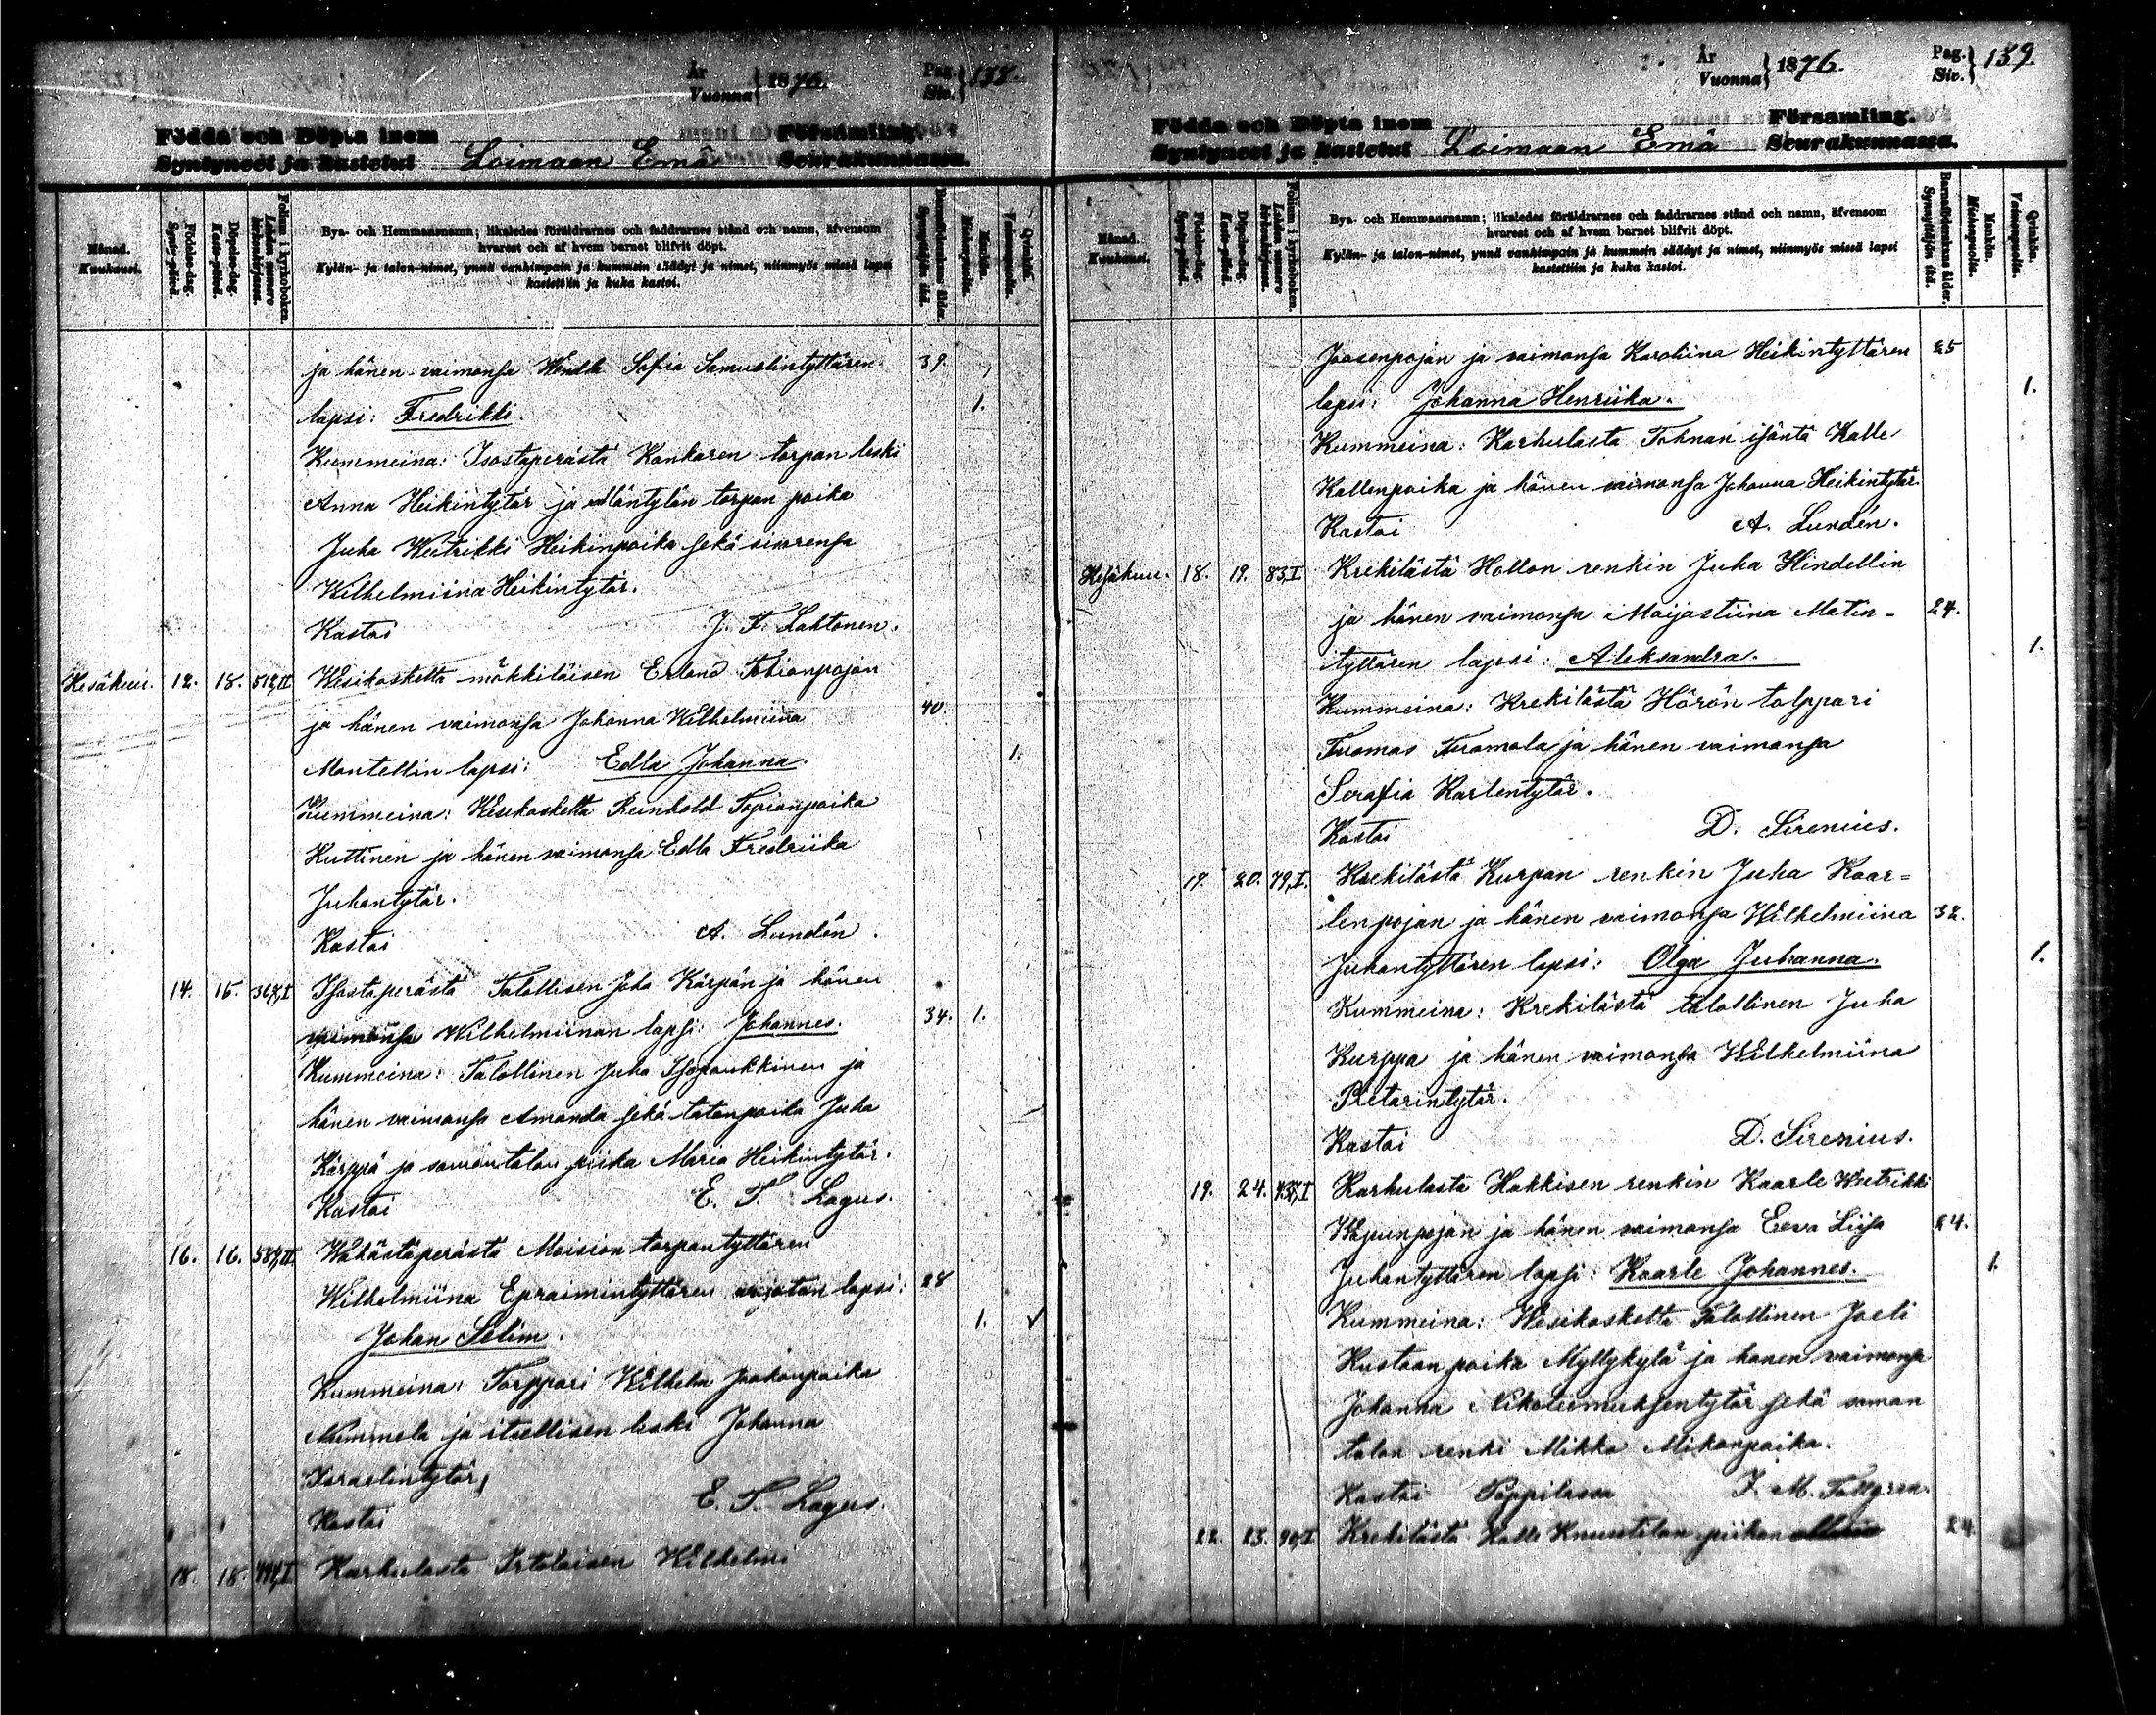 År
Vuonna } 1876.
Pag.
Siv. } 138.
Födda och Döpta inom
Syntyneet ja kastetut
Loimaan Emä
Församling.
Seurakunnassa.
Månad.
Kuukausi.
Födelse-dag.
Synty-päivä.
Döpelse-dag.
Kaste-päivä.
Folium i kyrkoboken.
Lehden numero kirkonkirjassa.
Bya- och Hemmansnamn; likaledes föräldrarnes och faddrarnes stånd och namn, äfvensom
hvarest och af hvem barnet blifvit döpt.
Kylän- ja talon-nimet, ynnä vanhimpain ja kummein säädyt ja nimet, niinmyös missä lapsi
kastettiin ja kuka kastoi.
Barnaföderskans ålder.
Synnyttäjän ikä.
Mankön.
Miehenpuolia.
Qvinkön.
Vaimonpuolia.
ja hänen vaimonsa Wendla Sofia Samuelintyttären 39.
lapsi: Fredrikki. 1.
Kummeina: Isostaperästä Kankaren torpan leski
Anna Heikintytär ja Mäntylän torpan poika
Juha Wetrikki Heikinpoika sekä sisarensa
Wilhelmiina Heikintytär.
Kastoi J. F. Lahtonen.
Kesäkuu. 12. 18. 512,II Wesikoskelta mökkiläisen Erland Tobianpojan
ja hänen vaimonsa Johanna Wilhelmiina 40.
Montellin lapsi: Edla Johanna. 1.
Kummeina: Wesikoskelta Reinhold Topianpoika
Kuttinen ja hänen vaimonsa Edla Fredriika
Juhantytär.
Kastoi A. Lundén.
14. 15. 367,I Isostaperästä Talollisen Juha Kärpän ja hänen
vaimonsa Wilhelmiinan lapsi: Johannes. 34. 1.
Kummeina: Talollinen Juha Isopoukkinen ja
hänen vaimonsa Amanda sekä talonpoika Juha
Kärppä ja saman talon piika Maria Heikintytär.
Kastoi E. T. Lagus.
16. 16. 537,II Wähästäperästä Moision torpantyttären
Wilhelmiina Epraimintyttären avioton lapsi: 28
Johan Selim. 1.
Kummeina: Torppari Wilhelm Jaakonpoika
Nummela ja itsellisen leski Johanna
Israelintytär,
Kastoi E. T. Lagus.
18. 18. 444,I Karhulasta Irtolaisen Wilhelmi
År
Vuonna } 1876.
Pag.
Siv. } 139.
Födda och Döpta inom
Syntyneet ja kastetut
Loimaan Emä
Församling.
Seurakunnassa.
Månad.
Kuukausi.
Födelse-dag.
Synty-päivä.
Döpelse-dag.
Kaste-päivä.
Folium i kyrkoboken.
Lehden numero kirkonkirjassa.
Bya- och Hemmansnamn; likaledes föräldrarnes och faddrarnes stånd och namn, äfvensom
hvarest och af hvem barnet blifvit döpt.
Kylän- ja talon-nimet, ynnä vanhimpain ja kummein säädyt ja nimet, niinmyös missä lapsi
kastettiin ja kuka kastoi.
Barnaföderskans ålder.
Synnyttäjän ikä.
Mankön.
Miehenpuolia.
Qvinkön.
Vaimonpuolia.
Joosenpojan ja vaimonsa Karoliina Heikintyttären 25
lapsi: Johanna Henriika. 1.
Kummeina: Karhulasta Tohnan isäntä Kalle
Kallenpoika ja hänen vaimonsa Johanna Heikintytär.
Kastoi A. Lundén.
Kesäkuu. 18. 19. 83,I. Krekilästä Hollon renkin Juha Hindellin
ja hänen vaimonsa Maijastiina Matin- 24.
tyttären lapsi: Aleksandra. 1.
Kummeina: Krekilästä Hörön tolppari
Tuomas Tuomola ja hänen vaimonsa
Serafia Karlentytär.
Kastoi D. Sirenius.
19. 20. 79,I. Krekilästä Kurpan renkin Juha Kaar=
lenpojan ja hänen vaimonsa Wilhelmiina 32.
Juhantyttären lapsi: Olga Juhanna. 1.
Kummeina: Krekilästä talollinen Juha
Kurppa ja hänen vaimonsa Wilhelmiina
Pietarintytär.
Kastoi D. Sirenius.
19. 24. 437,I Karhulasta Hakkisen renkin Kaarle Wietrikki
Wapunpojan ja hänen vaimonsa Eeva Liisa 24.
Juhantyttären lapsi: Kaarle Johannes. 1.
Kummeina: Wesikoskelta Talollinen Joeli
Kustaanpoika Myllykylä ja hänen vaimonsa
Johanna Nikoteemuksentytär sekä saman
talon renki Mikko Mikonpoika.
Kastoi Pappilassa F. M. Tallgren.
22. 23. 90,I Krekilästä Kalle Knuutilan piikan 24.